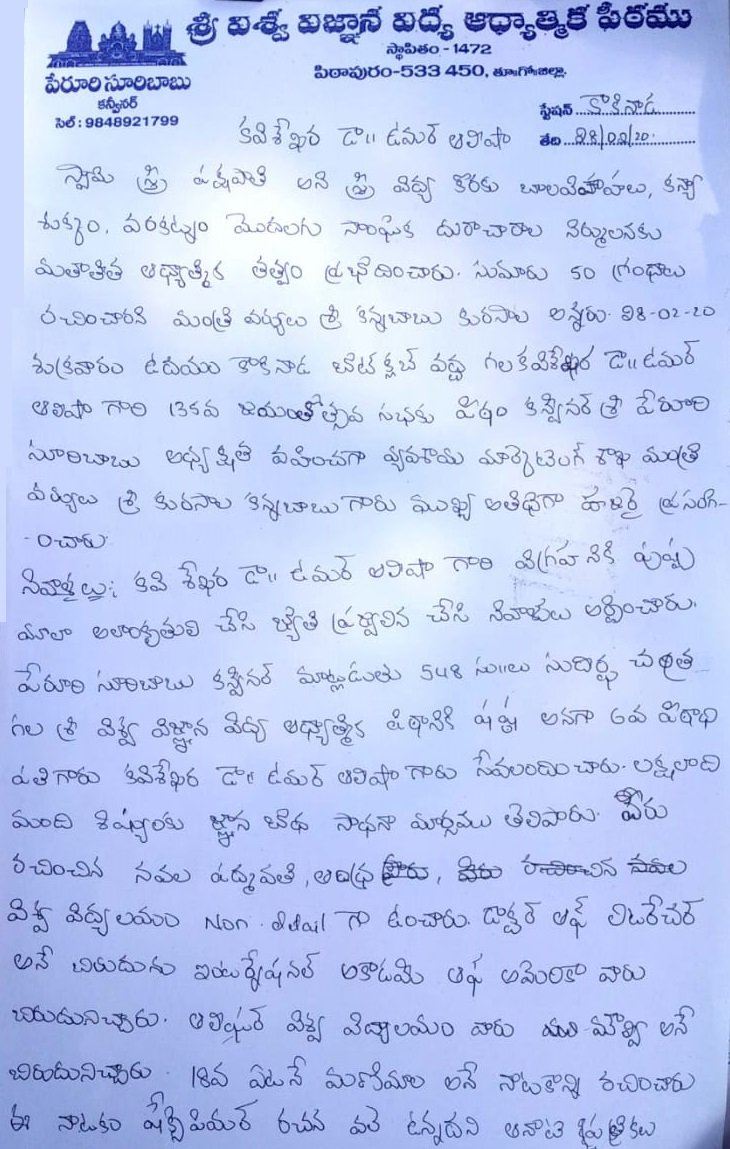 శ్రీ విశ్వ విజ్ఞాన విద్య ఆధ్యాత్మిక పీఠము
స్థాపితం - 1472
పిఠాపురం-533 450, తూ.గో.జిల్లా.
పేరూరి సూరిబాబు
కన్వీనర్
సెల్ : 9848921799
స్టేషన్ కాకినాడ
తేది 28/02/20.
కవిశేఖర డా॥ ఉమర్ ఆలీషా
స్వామి స్త్రీ పక్షపాతి అని స్త్రీ విద్య కొరకు బాలవివాహలు, కన్యా
శుక్కం, వరకట్నం మొదలగు సాంఘిక దురాచారాల నిర్మూలనకు
మతాతీత ఆధ్యాత్మిక తత్వం ప్రభోదించారు. సుమారు 50 గ్రంధాలు
రచించారని మంత్రి వర్యులు శ్రీ కన్నబాబు కురసాల అన్నరు. 28-02-20
శుక్రవారం ఉదయం కాకినాడ బోట్ క్లబ్ వద్ద గల కవిశేఖర డా॥ ఉమర్
ఆలీషా గారి 135వ జయంతోత్సవ సభకు పీఠం కన్వీనర్ శ్రీ పేరూరి
సూరిబాబు అధ్యక్షత వహించగా వ్యవసాయ మార్కెటింగ్ శాఖ మంత్రి
వర్యులు శ్రీ కురసాల కన్నబాబు గారు ముఖ్య అతిథిగా హాజరై ప్రసంగి-
-ంచారు.
నివాళ్లలు: కవి శేఖర డా॥ ఉమర్ ఆలీషా గారి విగ్రహనికి పుష్ప
మాలా అలంకృతులి చేసి జ్యోతి ప్రజ్వాలిన చేసి నివాళులు అర్పించారు.
పేరూరి సూరిబాబు కన్వీనర్ మాట్లడుతు 548 సు॥లు సుదీర్ఘ చరిత్ర
గల శ్రీ విశ్వ విజ్ఞాన విద్య ఆధ్యాత్మిక పీఠానికి షష్ఠ అనగా 6వ పీఠాధి
పతి గారు కవిశేఖర డా॥ ఉమర్ ఆలీషా గారు సేవలందించారు. లక్షలాది
మంది శిష్యులకు జ్ఞాన బోధ సాధనా మార్గము తెలిపారు. వీరు
రచించిన నవల పద్మావతి, ఆంధ్ర
విశ్వ విద్యలయం Non. detail గా ఉంచారు. డాక్టర్ ఆఫ్ లిటరేచర్
అనే బిరుదును ఇంటర్నేషనల్ అకాడమి ఆఫ్ అమెరికా వారు
బిరుదునిచ్చారు. ఆలీఘర్ విశ్వ విద్యాలయం వారు మౌల్వీ అనే
బిరుదునిచ్చారు. 18వ ఏటనే మణిమాల అనే నాటకాన్ని రచించారు
ఈ నాటకం షేక్స్పియర్ రచన వలె ఉన్నదని ఆనాటి పత్రికలు